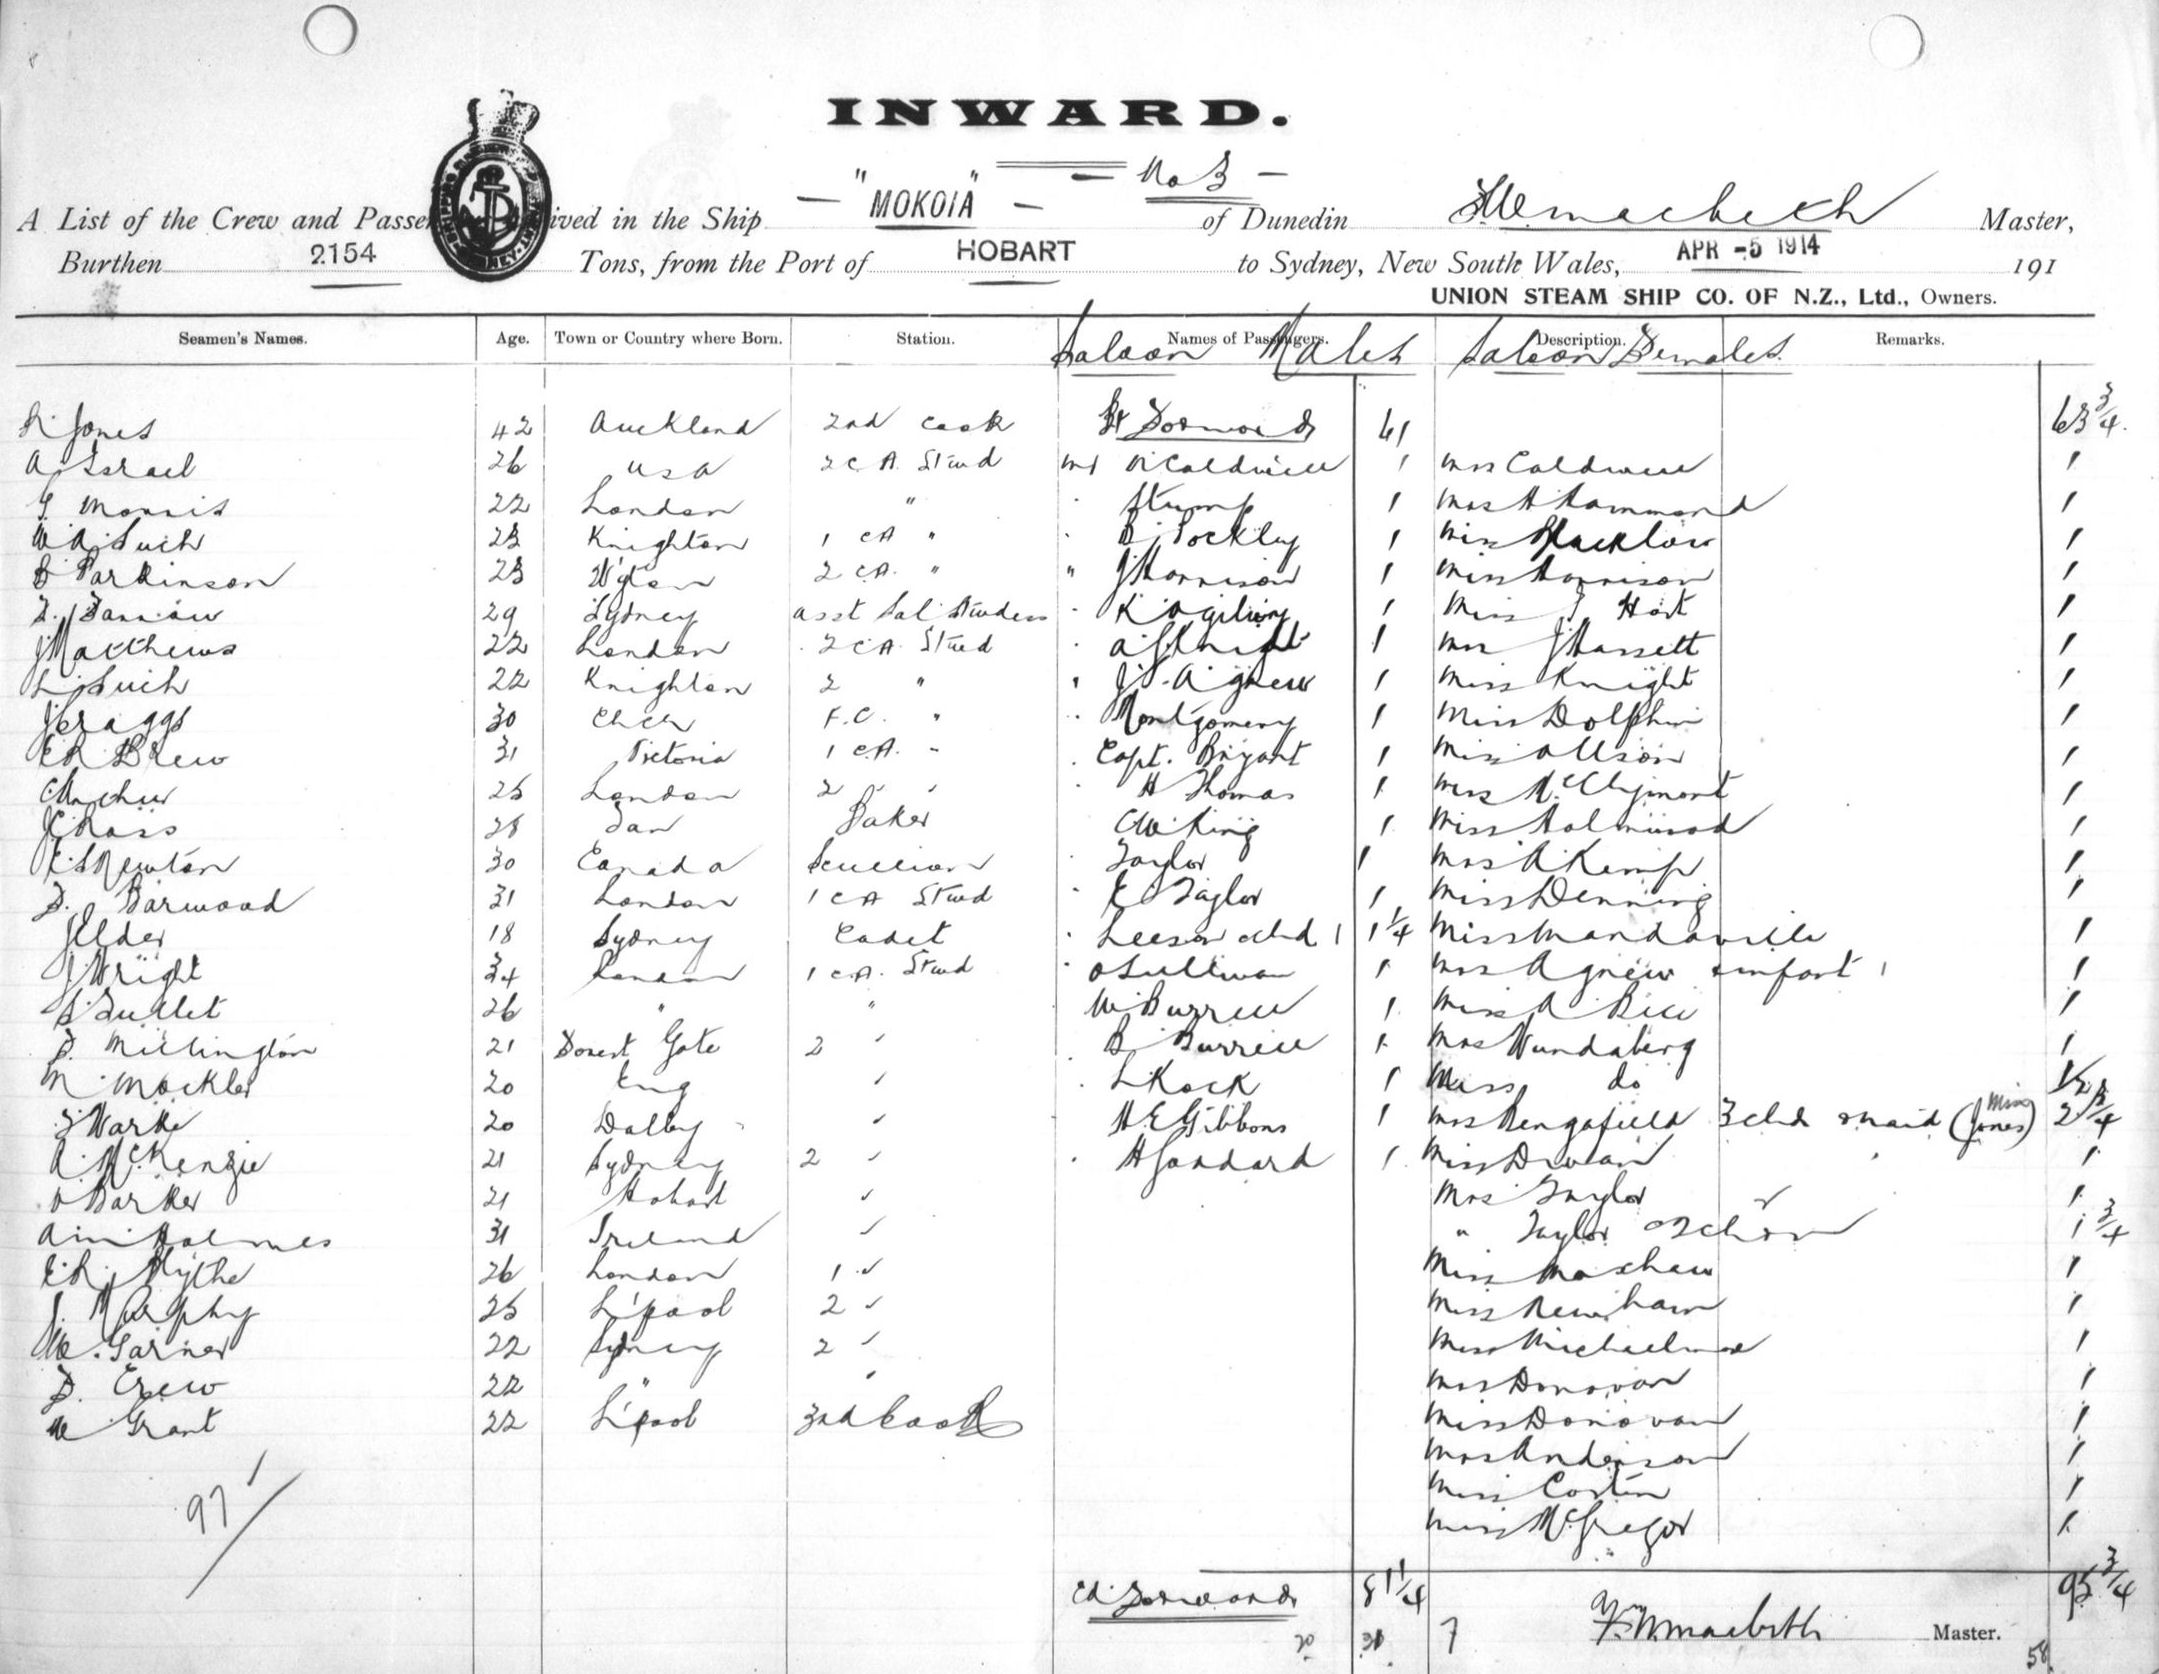 INWARD.
"MOKOIA" No 3
A List of the Crew and Passengers arrived in the Ship "MOKOIA" of Dunedin Macbeth Master,
Burthen 2154 Tons, from the Port of HOBART to Sydney, New South Wales, APR -5 1914 191
UNION STEAM SHIP CO. OF N.Z., Ltd., Owners.
Seamen's Names. Age. Town or Country where Born. Station. Names of Passengers. Description. Remarks.
Saloon Males Saloon Females
Jones 42 Auckland 2nd Cook Bt Forward 61 63 3/4
A Israel 26 USA 2 C.A. Stwd Mr Caldwell 1 Mrs Caldwell 1
G Morris 22 London " Stump 1 Mrs H Hammond 1
W A Such 23 Knighton 1 CA " B Pockley 1 Miss 1
B Parkinson 23 2 C.A. " " J Harrison 1 Miss Harrison 1
29 Sydney Asst Sal Stwdess K Ogilvy 1 Miss Hart 1
J Matthews 22 London 2 CA Stwd A Knight 1 Mrs J Hassett 1
L Such 22 Knighton 2 " J Agnew 1 Miss Knight 1
J Craggs 30 ChCh F.C. " Montgomery 1 Miss Dolphin 1
Brew 31 Victoria 1 C.A. " Capt. Bryant 1 Miss Allison 1
25 London 2 " H Thomas 1 Miss McClymont 1
J Ross 28 Baker C W King 1 Miss 1
Newton 30 Canada Scullion Taylor 1 Mrs A Kemp 1
F. Barwood 31 London 1 CA Stwd E Taylor 1 Miss Denning 1
J Elder 18 Sydney Cadet Leeson chd 1 1 1/4 Miss Mandaville 1
J Wright 34 London 1 C.A. Stwd O Sullivan 1 Mrs Agnew & infant 1 1
26 " " W Burrell 1 Miss A Bell 1
F. Millington 21 Gate 2 " B Burrell 1 Mrs Wundaberg 1
M Mockler 20 Eng " L Kock 1 Miss do 1/2
Warke 20 Dalby " H E Gibbons 1 Mrs 3 chd & maid (Miss Jones) 2 3/4
A McKenzie 21 Sydney 2 " H Goddard 1 Miss 1
Barker 21 Hobart " Mrs Taylor 1
Holmes 31 Ireland " " Taylor 1 3/4
Blythe 26 London 1 " Miss 1
J. Murphy 25 L'pool 2 " Miss Newham 1
W. Garner 22 Sydney 2 " Michaelmore 1
F. Crew 22 " " Mrs Donovan 1
W Grant 22 L'pool 3rd Cook Miss Donovan 1
Mrs Anderson 1
Miss Costin 1
Miss McGregor 1
97
Cd Forward 81 1/4 95 3/4
20 31 7 Macbeth Master.
58